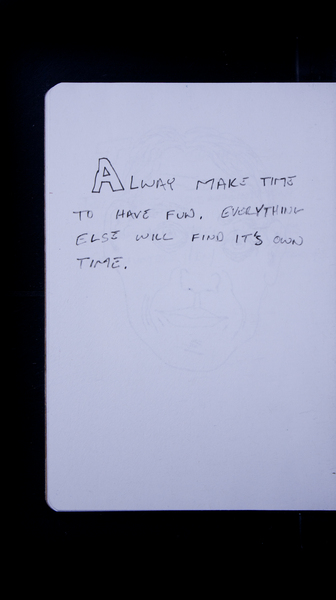 ALWAY MAKE TIME
TO HAVE FUN. EVERYTHING
ELSE WILL FIND IT'S OWN
TIME.